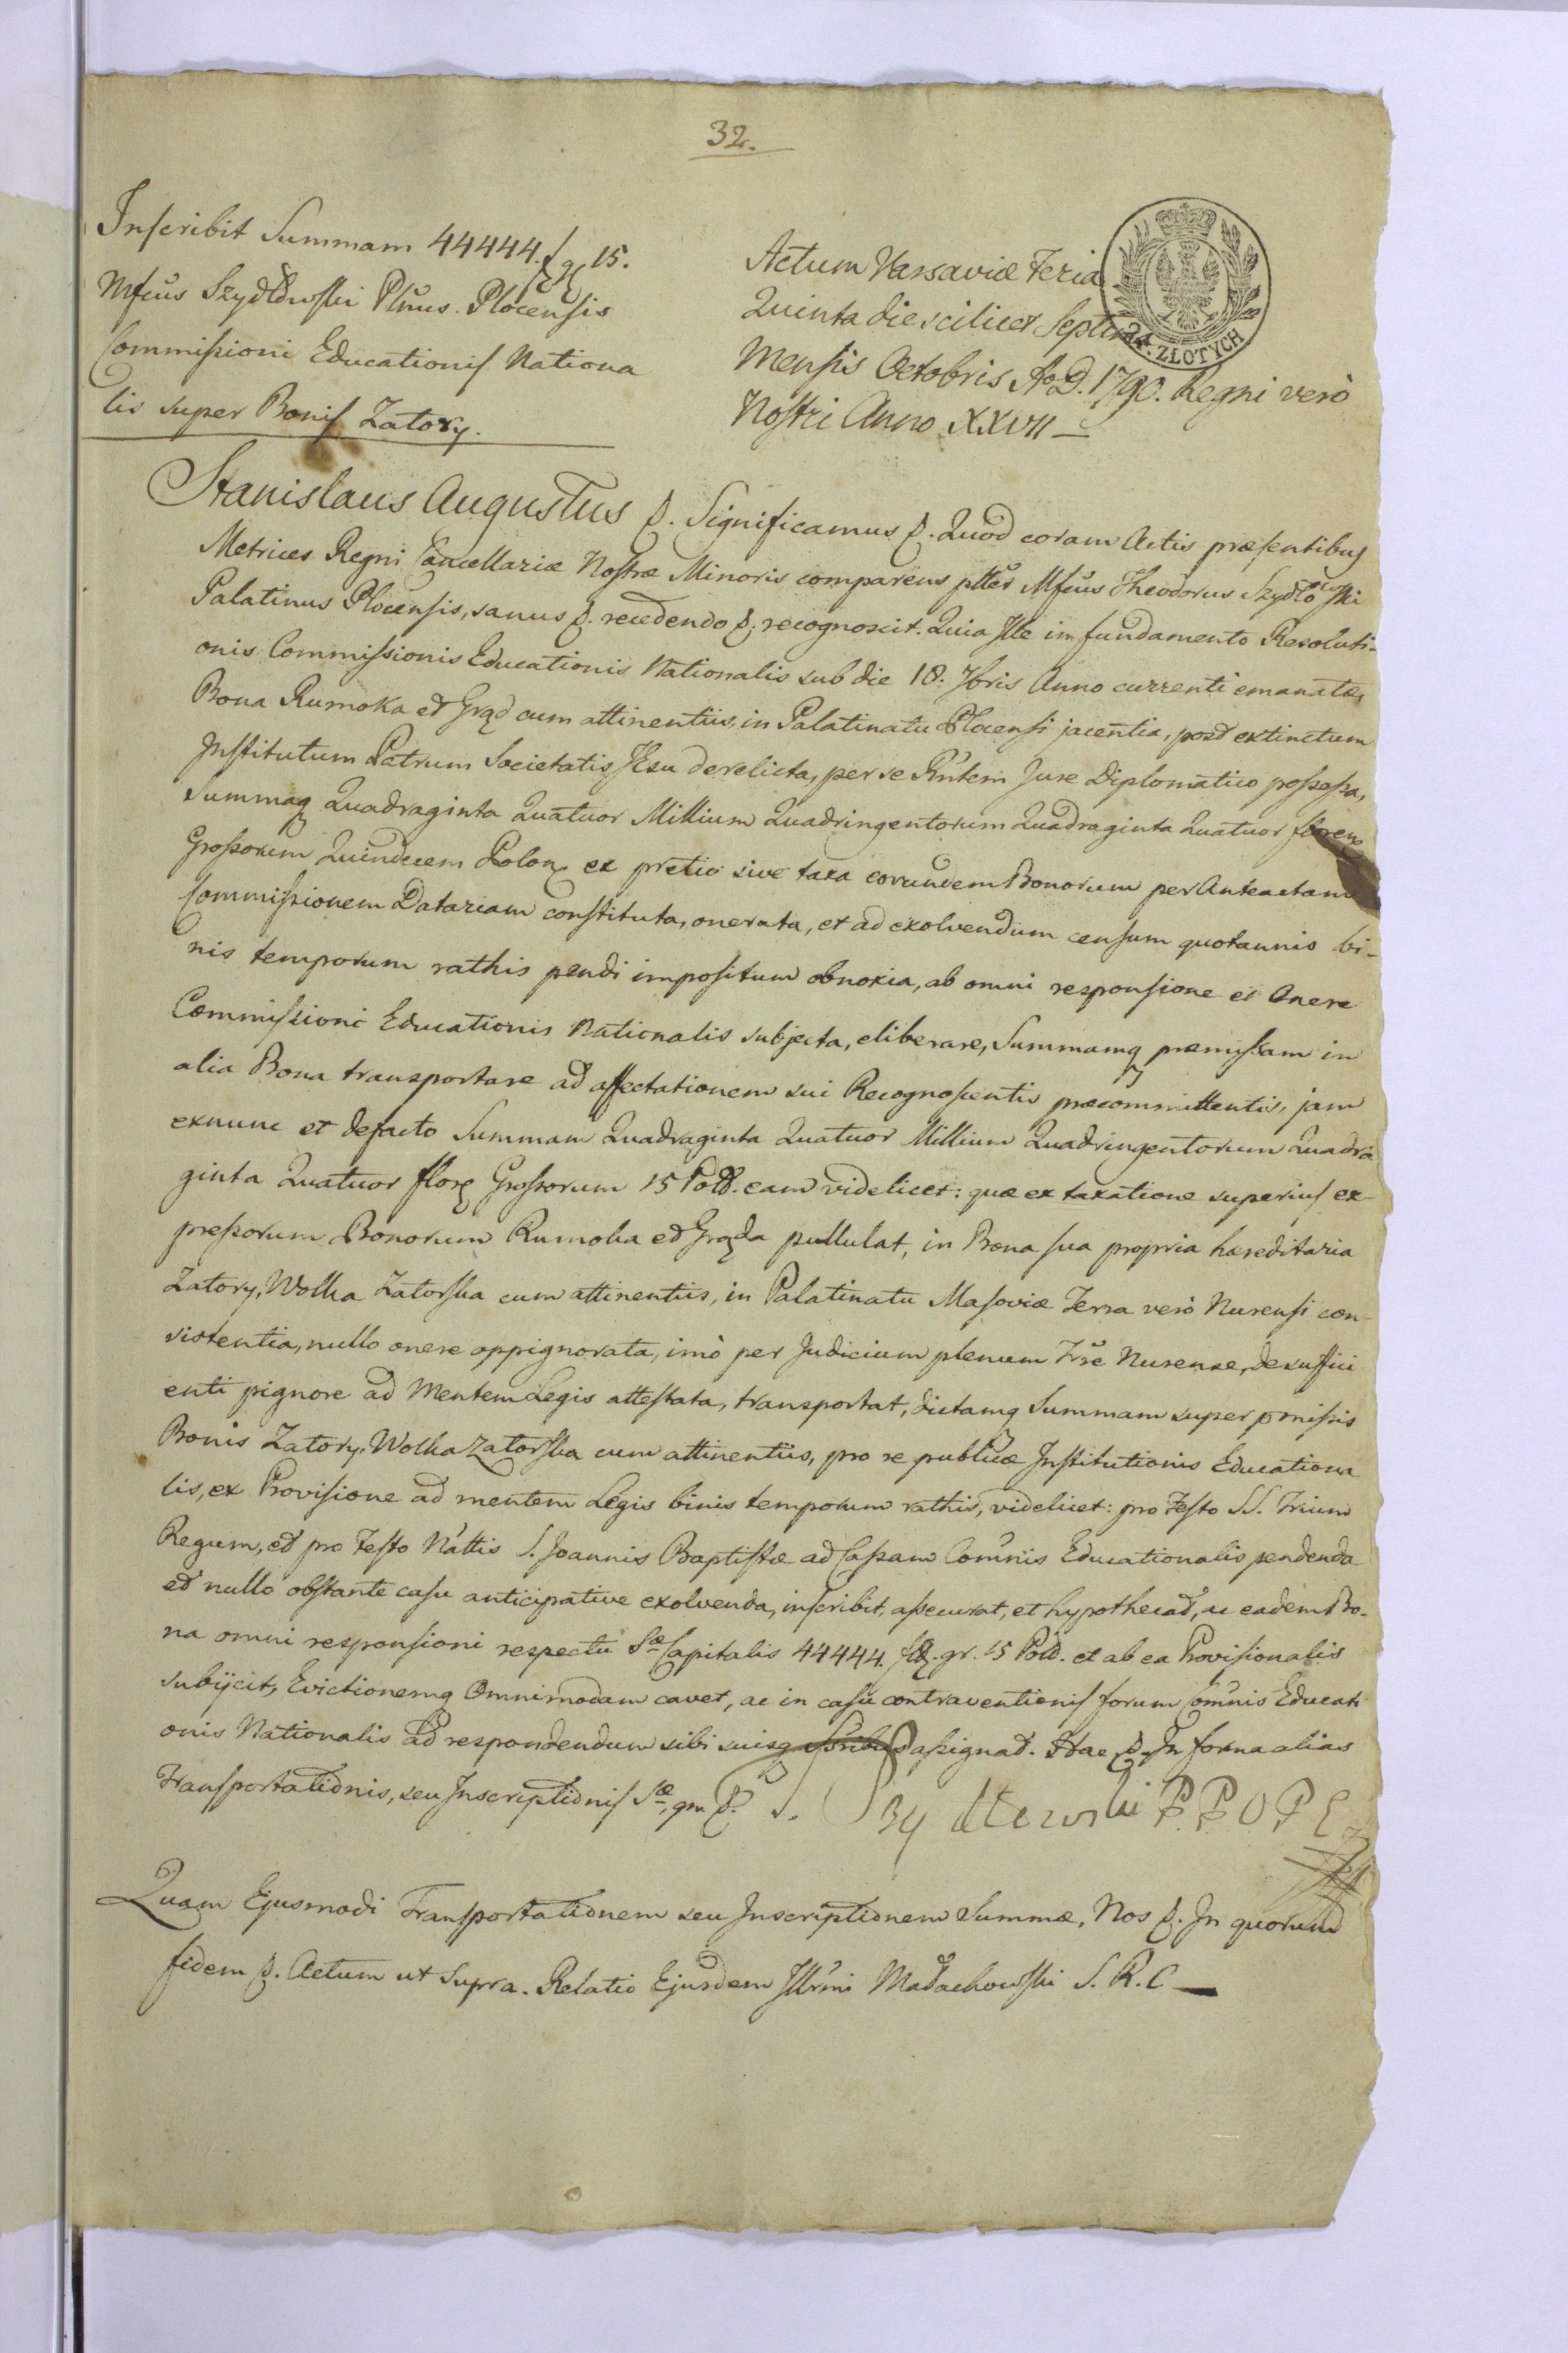 32.
Inscribit Summam 44444. f g 15.
Mfcus Szydłowski Plnus. Plocensis
Commissioni Educationis Nationa
lis super Bonis Zatory.
Actum Varsaviæ Feria
Quinta die scilicet Septima
Mensis Octobris Ao D. 1790. Regni verò
Nostri Anno XXVII
24. ZŁOTYCH
Stanislaus Augustus &. Significamus &. Quod coram Actis præsentibus
Metrices Regni Cancellariæ Nostræ Minoris comparens pltter Mfcus Theodorus Szydłowski
Palatinus Plocensis, sanus &. recedendo &. recognoscit. Quia Ille in fundamento Resoluti-
onis Commissionis Educationis Nationalis sub die 18. 7bris Anno currenti emanatæ,
Bona Rumoka et Grąd cum attinentiis, in Palatinatu Plocensi jacentia, post extinctum
Institutum Patrum Societatis Jesu derelicta, per se Rntem Jure Diplomatico possessa,
Summaq Quadraginta Quatuor Millium Quadringentorum Quadraginta Quatuor floren
Grossorum Quindecem Polon ex pretio sive taxa eorundem Bonorum per Anteactam
Commissionem Datariam constituta, onerata, et ad exolvendum censum quotannis bi-
nis temporum rathis pendi impositum obnoxia, ab omni responsione et Onere
Commissioni Educationis Nationalis subjecta, eliberare, Summamq præmissam in
alia Bona transportare ad affectationem sui Recognoscentis præcommittentis, jam
exnunc et defacto Summam Quadraginta Quatuor Millium Quadringentorum Quadra
ginta Quatuor flor Grossorum 15 Poll. eam videlicet: quæ ex taxatione superius ex-
pressorum Bonorum Rumoka et Grąda pullulat, in Bona sua propria hæreditaria
Zatory, Wolka Zatorska cum attinentiis, in Palatinatu Masoviæ Terra verò Nurensi con-
sistentia, nullo onere oppignorata, imò per Judicium plenum Trre Nurense, de suffici
enti pignore ad Mentem Legis attestata, transportat, dictamq Summam super pmissis
Bonis Zatory, Wolka Zatorska cum attinentiis, pro re publicæ Institutionis Educationa
lis, ex Provisione ad mentem Legis binis temporum rathis, videlicet: pro Festo SS. Trium
Regum, et pro Festo Nattis S. Joannis Baptistæ ad Cassam Comnis Educationalis pendenda
et nullo obstante casu anticipative exolvenda, inscribit, assecurat, et hypothecat, ac eadem Bo-
na omni responsioni respectu Sæ Capitalis 44444. fl. gr. 15 Poll. et ab ea Provisionalis
subijcit, Evictionemq Omnimodam cavet, ac in casu contraventionis forum Comnis Educati
onis Nationalis ad respondendum sibi suisq assignat. Hac &. In forma alias
Transportationis, seu Inscriptionis Sæ, qm &. T. Szydłowski P P O P E
Quam Ejusmodi Transportationem seu Inscriptionem Summæ, Nos &. In quorum
fidem &. Actum ut Supra. Relatio Ejusdem Illrmi Małachowski S. R. C